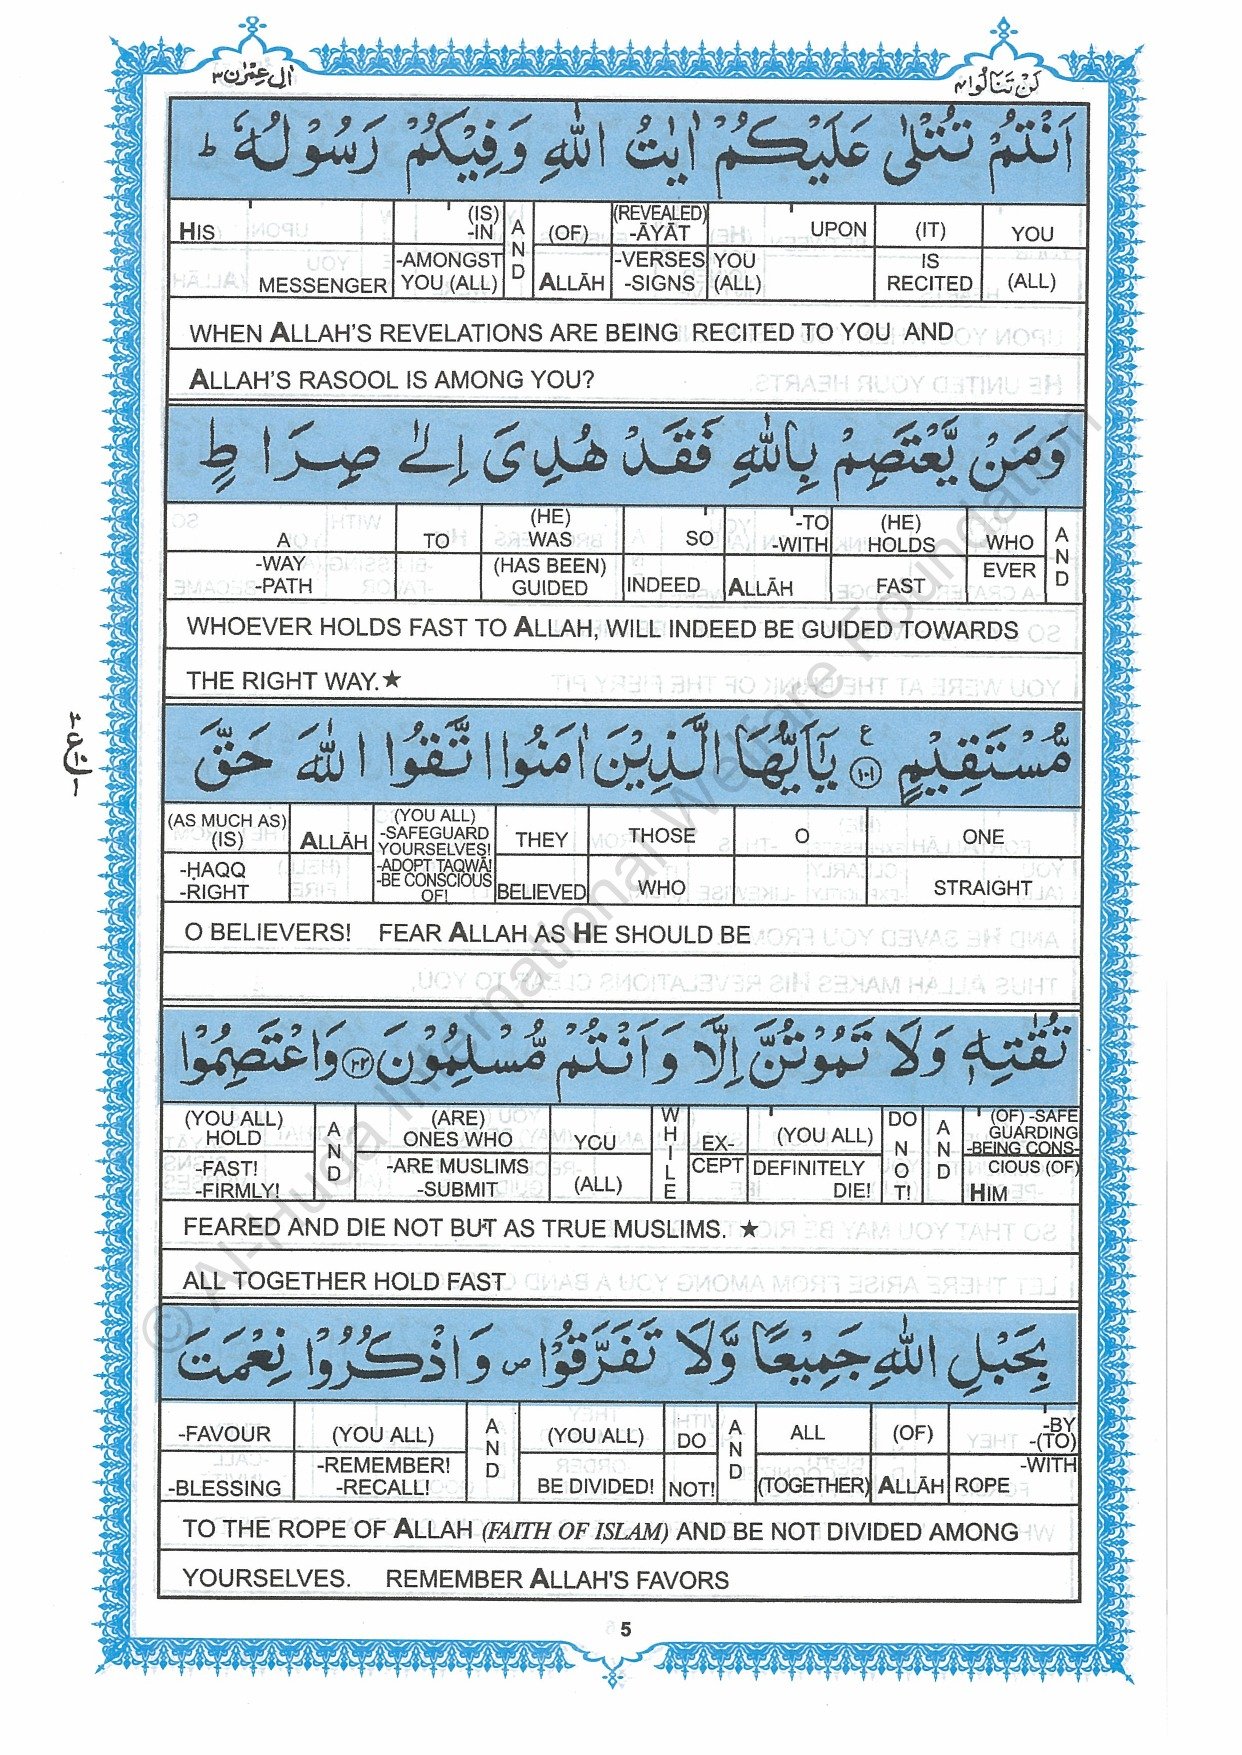 اٰل عمرٰن ٣
لن تنالوا ٤
اَنْتُمْ تُتْلٰى عَلَيْكُمْ اٰيٰتُ اللّٰهِ وَفِيْكُمْ رَسُوْلُهٗ ط
HIS (IS) -IN A N D (OF) (REVEALED) -ĀYĀT UPON (IT) YOU
MESSENGER -AMONGST YOU (ALL) ALLĀH -VERSES -SIGNS YOU (ALL) IS RECITED (ALL)
WHEN ALLAH'S REVELATIONS ARE BEING RECITED TO YOU AND
ALLAH'S RASOOL IS AMONG YOU?
وَمَنْ يَّعْتَصِمْ بِاللّٰهِ فَقَدْ هُدِىَ اِلٰى صِرَاطٍ
A TO (HE) WAS SO -TO -WITH (HE) HOLDS WHO A N D
-WAY -PATH (HAS BEEN) GUIDED INDEED ALLĀH FAST EVER
WHOEVER HOLDS FAST TO ALLAH, WILL INDEED BE GUIDED TOWARDS
THE RIGHT WAY.★
٣ ع ١٠ ١
مُّسْتَقِيْمٍ ١٠١ ع يٰٓاَيُّهَا الَّذِيْنَ اٰمَنُوا اتَّقُوا اللّٰهَ حَقَّ
(AS MUCH AS) (IS) ALLĀH (YOU ALL) -SAFEGUARD YOURSELVES! THEY THOSE O ONE
-ḤAQQ -RIGHT -ADOPT TAQWĀ! -BE CONSCIOUS OF! BELIEVED WHO STRAIGHT
O BELIEVERS! FEAR ALLAH AS HE SHOULD BE
تُقٰتِهٖ وَلَا تَمُوْتُنَّ اِلَّا وَاَنْتُمْ مُّسْلِمُوْنَ ١٠٢ وَاعْتَصِمُوْا
(YOU ALL) HOLD A N D (ARE) ONES WHO YOU W H I L E EX- (YOU ALL) DO N O T! A N D (OF) -SAFE GUARDING -BEING CONS-
-FAST! -FIRMLY! -ARE MUSLIMS -SUBMIT (ALL) CEPT DEFINITELY DIE! CIOUS (OF) HIM
FEARED AND DIE NOT BUT AS TRUE MUSLIMS. ★
ALL TOGETHER HOLD FAST
بِحَبْلِ اللّٰهِ جَمِيْعًا وَّلَا تَفَرَّقُوْا ص وَاذْكُرُوْا نِعْمَتَ
-FAVOUR (YOU ALL) A N D (YOU ALL) DO A N D ALL (OF) -BY -(TO)
-BLESSING -REMEMBER! -RECALL! BE DIVIDED! NOT! (TOGETHER) ALLĀH ROPE -WITH
TO THE ROPE OF ALLAH (FAITH OF ISLAM) AND BE NOT DIVIDED AMONG
YOURSELVES. REMEMBER ALLAH'S FAVORS
5
© Al-Huda International Welfare Foundation